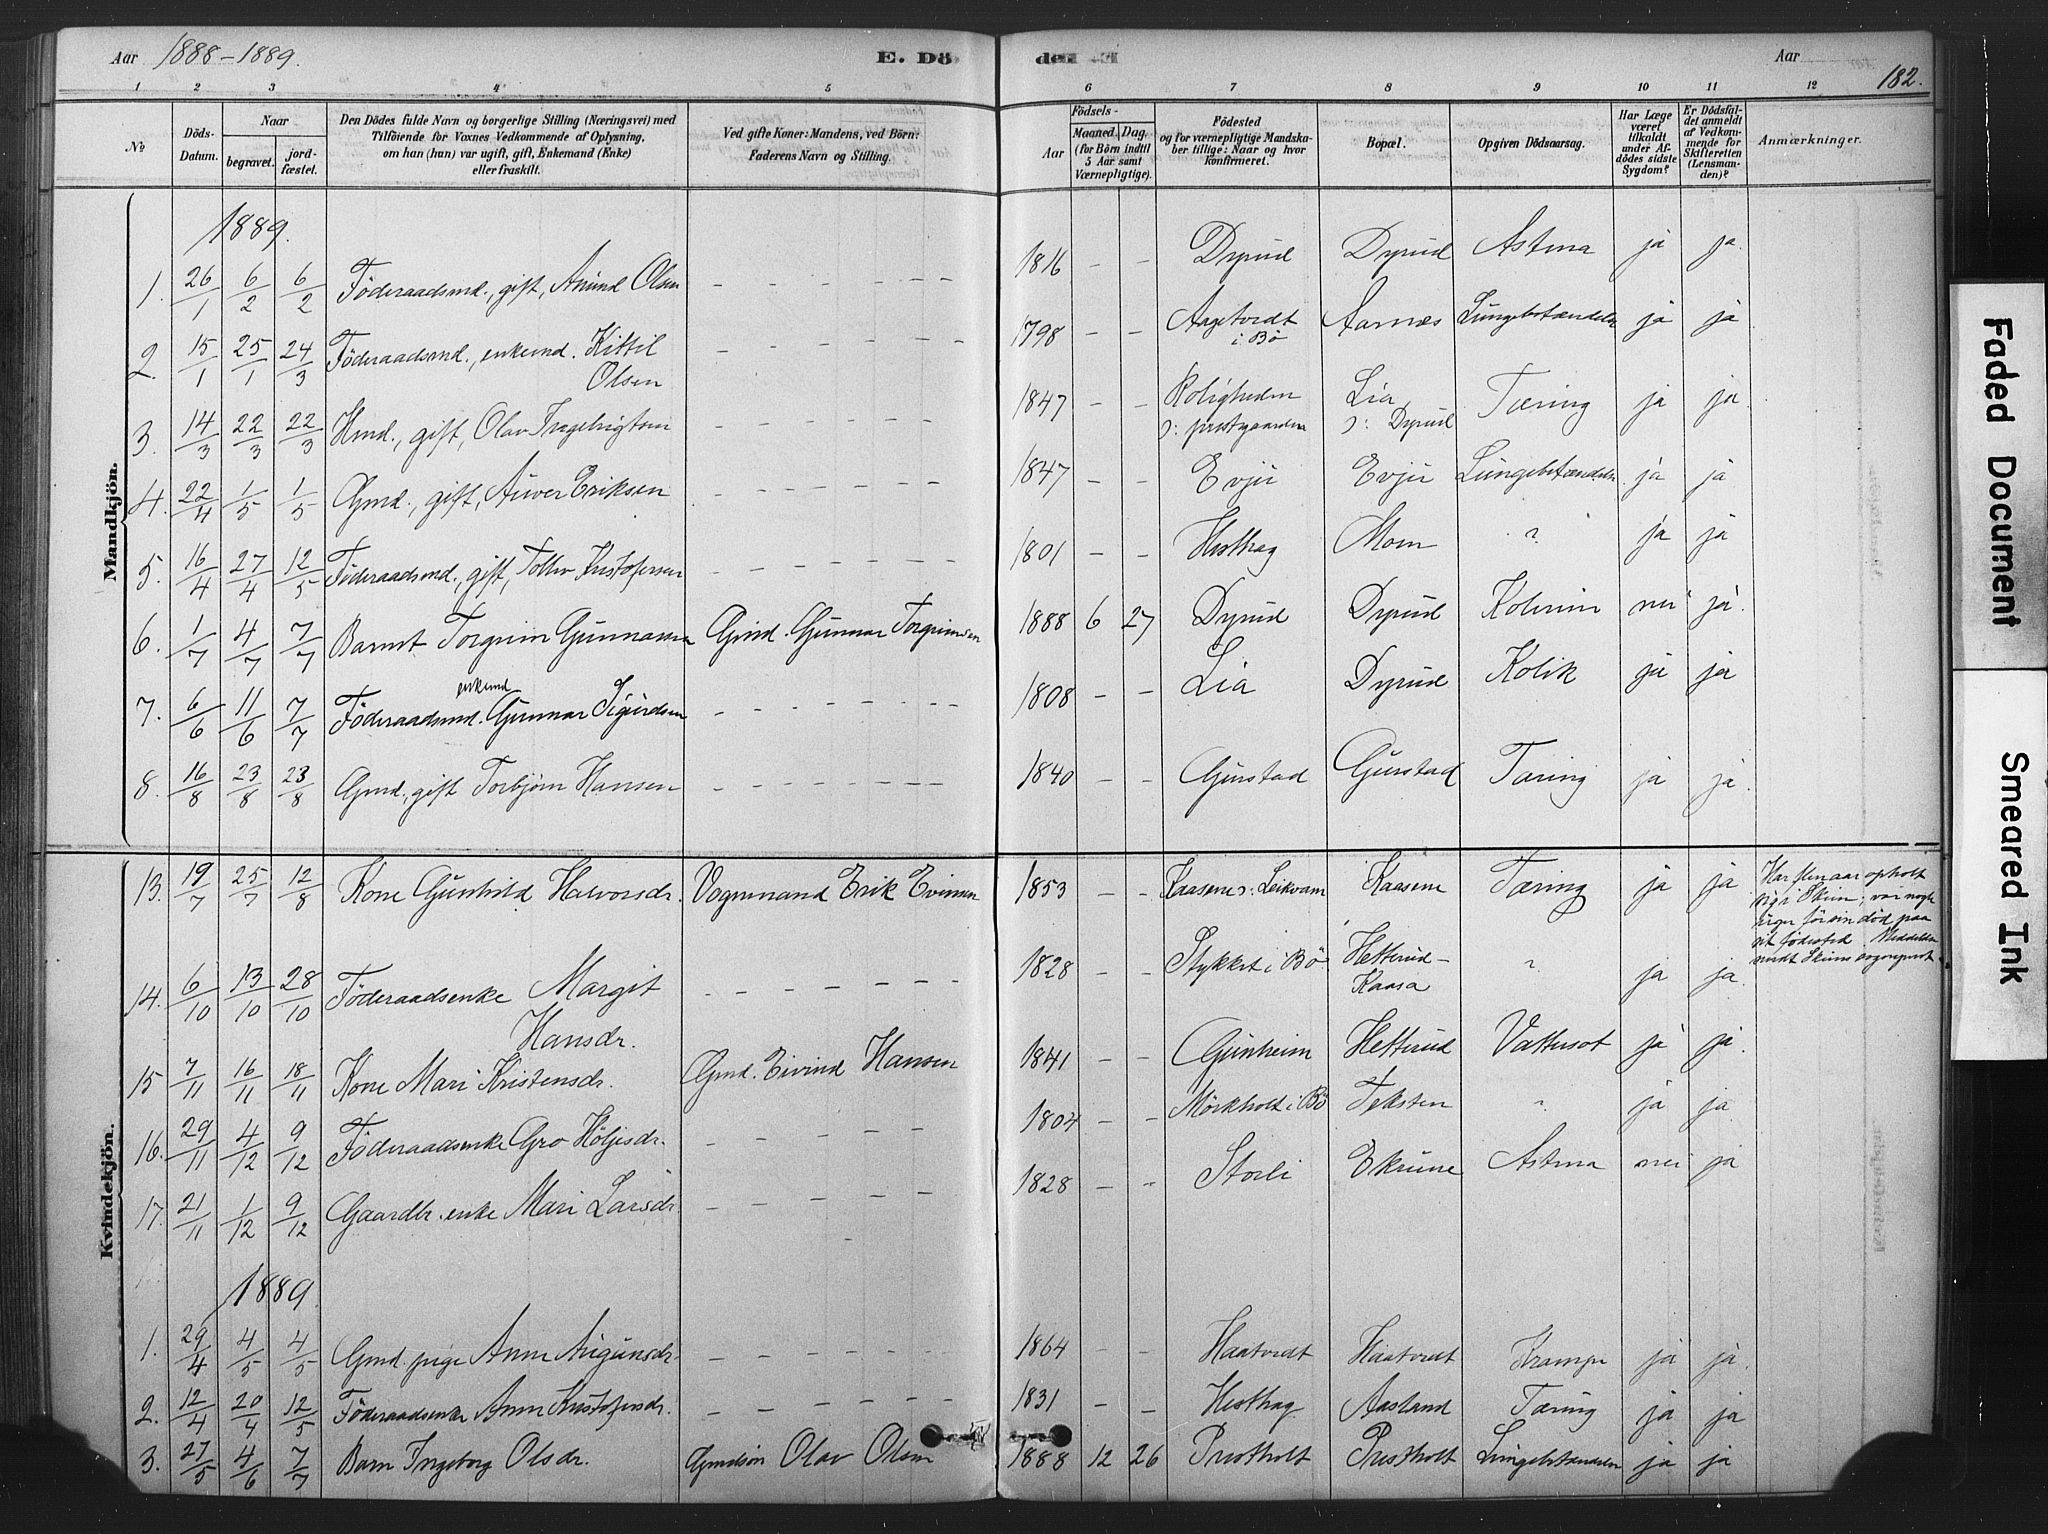 Aar 1888-1889.
E. Dö
den E
Aar
182.
1 2 3 4 5 6 7 8 9 10 11 12
No
Döds-Datum.
Naar
begravet.
jordfæstet.
Den Dödes fulde Navn og borgerlige Stilling (Næringsvei) med
Tilföiende for Voxnes Vedkommende af Oplysning,
om han (hun) var ugift, gift, Enkemand (Enke)
eller fraskilt.
Ved gifte Koner: Mandens, ved Börn:
Faderens Navn og Stilling.
Födsels-
Aar
Maaned. Dag.
(for Börn indtil
5 Aar samt
Værnepligtige).
Födested
og for værnepligtige Mandskaber tillige: Naar og hvor
konfirmeret.
Bopæl.
Opgiven Dödsaarsag.
Har Læge
været
tilkaldt
under Afdödes sidste
Sygdom?
Er Dödsfaldet anmeldt
af Vedkommende for
Skifteretten
(Lensmanden)?
Anmærkninger.
Mandkjön.
1889.
1. 26/1 6/2 6/2 Föderaadsmd., gift, Anund Olsen - - 1816 - - Dyrud Dyrud Astma ja ja.
2. 15/1 25/1 24/3 Föderaadsmd., enkemd. Kittil Olsen - - 1798 - - Aagetvedt i Bö Aarnæs Lungebetændelse ja ja
3. 14/3 22/3 22/3 Hmd., gift, Olav Ingebrigtsen - - 1847 - - Roligheden ɔ: prestgaarden Lia ɔ: Dyrud Tæring ja ja.
4. 22/4 1/5 1/5 Gmd., gift, Auver Eriksen - - 1847 - - Evju Evju Lungebetændelse ja ja
5. 16/4 27/4 12/5 Föderaadsmd., gift, Tollev Kristofersen - - 1801 - - Hesthag Moen " ja ja
6. 1/7 4/7 7/7 Barnet Torgrim Gunnarsen Gmd. Gunnar Torgrimsen 1888 6 27 Dyrud Dyrud Kolerin nei ja.
7. 6/6 11/6 7/7 Föderaadsmd. enkemd Gunnar Sigurdsen - - 1808 - - Lia Dyrud Kolik ja ja
8. 16/8 23/8 23/8 Gmd., gift Torbjörn Hansen - - 1840 - - Gjurstad Gjurstad Tæring ja ja.
Kvindekjön.
13. 19/7 25/7 12/8 Kone Gunhild Halvorsdr. Vognmand Erik Evensen 1853 - - Kaasene ɔ: Leikvam Kaasene Tæring ja ja Har flere aar opholt
sig i Skien; var nogle
uger för sin död paa
sit födested. Meddelelse
sendt Skiens sogneprest
14. 6/10 13/10 28/10 Föderaadsenke Margit Hansdr. - - 1828 - - Stykket i Bö Hetterud-Kaasa " ja ja
15 7/11 16/11 18/11 Kone Mari Kristensdr. Gmd. Eivind Hansen 1841 - - Gunheim Hetterud Vattersot ja ja.
16. 29/11 4/12 9/12 Föderaadsenke Gro Höljesdr. - - 1804 - - Mörkholt i Bö Teksten " ja ja
17. 21/11 1/12 9/12 Gaardbr. enke Mari Larsdr. - - 1828 - - Storli Ekrune Astma nei ja
1889
1. 29/4 4/5 4/5 Gmd. pige Anne Augunsdr. - - 1864 - - Haatvedt Haatvedt Krampe ja ja.
2. 12/4 20/4 12/5 Föderaadsenke Anne Kristofersdr. - - 1831 - - Hesthag Aasland Tæring ja ja
3. 27/5 4/6 7/7 Barn Ingeborg Olsdr. Gmdsön Olav Olsen 1888 12 26 Prestholt Prestholt Lungebetændelse ja ja
Faded Document
Smeared Ink